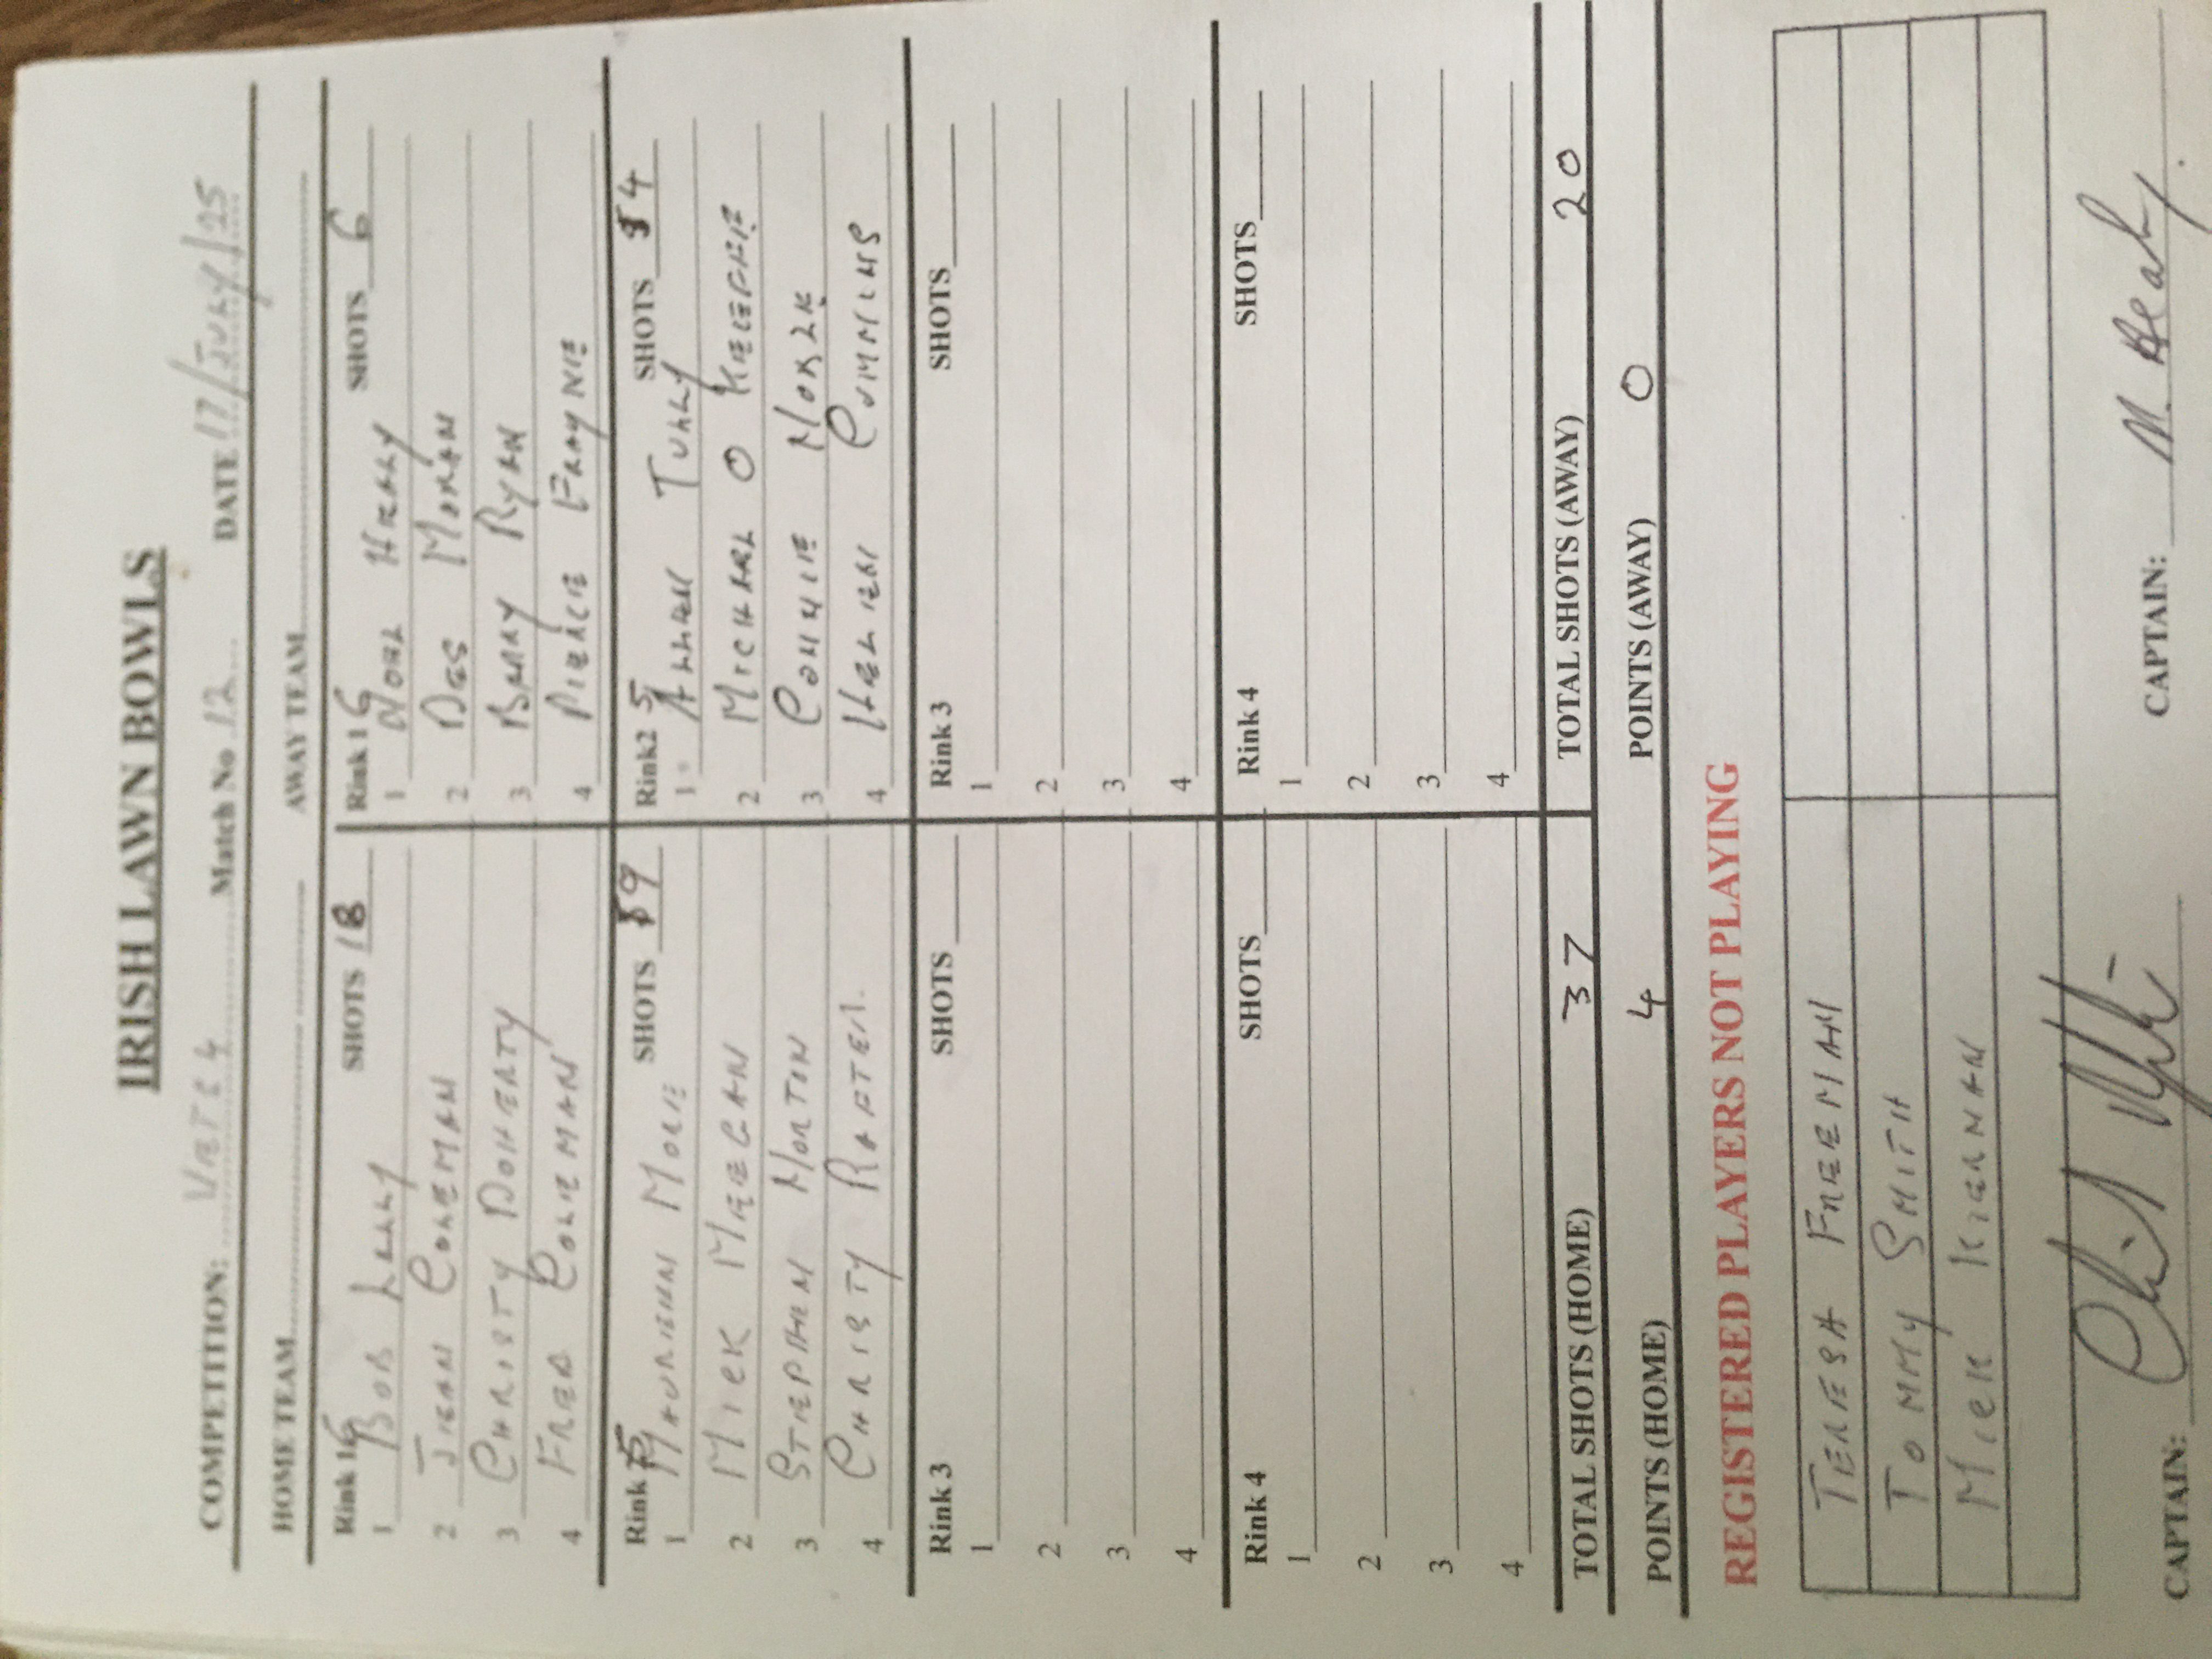 IRISH LAWN BOWLS
COMPETITION: VETS 4 Match No 12 DATE 17/JULY/25
HOME TEAM AWAY TEAM
Rink 1 6 SHOTS 18 Rink 1 6 SHOTS 6
1 BOB LALLY 1 NOEL HEALY
2 JEAN COLEMAN 2 DES MORAN
3 CHRISTY DOHERTY 3 BARRY RYAN
4 FRED COLEMAN 4 PIERCE FRAYNE
Rink 5 SHOTS 19 Rink2 5 SHOTS 14
1 MAUREEN MORE 1 ALLEN TULLY
2 MICK MEEGAN 2 MICHAEL O KEEFFE
3 STEPHEN HORTON 3 CONNIE
4 CHRISTY RAFTER 4 HELEN CUMMINS
Rink 3 SHOTS Rink 3 SHOTS
1 1
2 2
3 3
4 4
Rink 4 SHOTS Rink 4 SHOTS
1 1
2 2
3 3
4 4
TOTAL SHOTS (HOME) 37 TOTAL SHOTS (AWAY) 20
POINTS (HOME) 4 POINTS (AWAY) 0
REGISTERED PLAYERS NOT PLAYING
TERESA FREEMAN
TOMMY SMITH
MICK KIERNAN
CAPTAIN: CAPTAIN: M. Healy